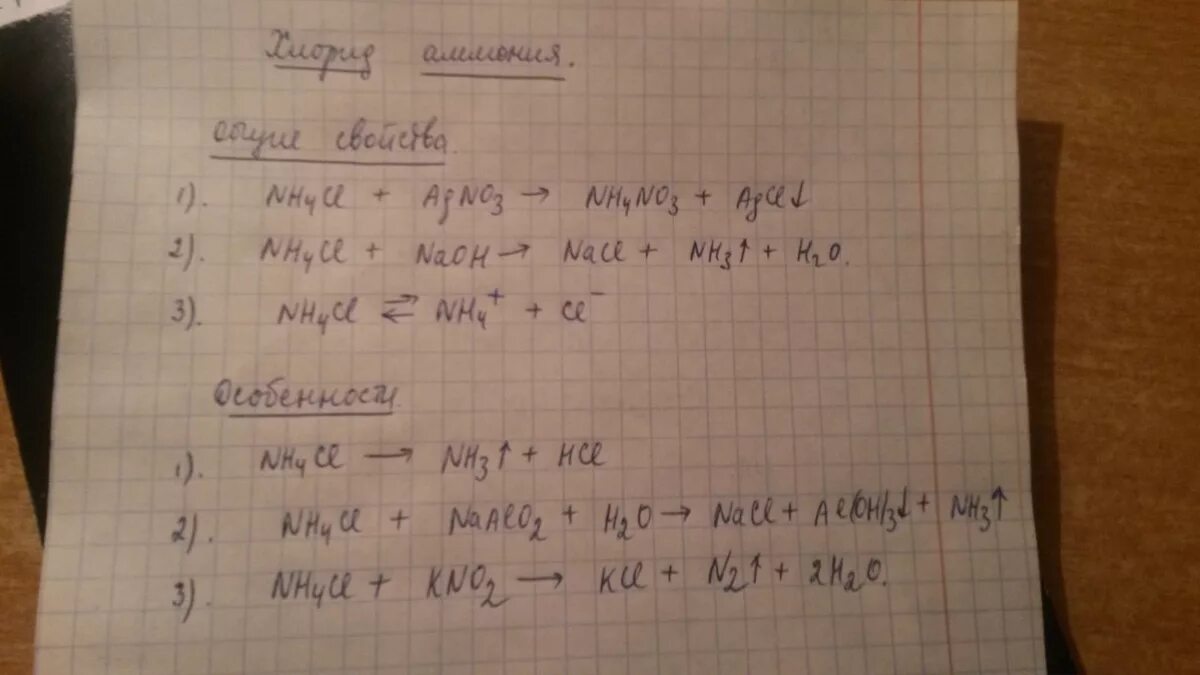 Хлорид аммония.
Общие свойства.
1). NH4Cl + AgNO3 → NH4NO3 + AgCl↓
2). NH4Cl + NaOH → NaCl + NH3↑ + H2O.
3). NH4Cl ⇄ NH4⁺ + Cl⁻
Особенности
1). NH4Cl → NH3↑ + HCl
2). NH4Cl + NaAlO2 + H2O → NaCl + Al(OH)3↓ + NH3↑
3). NH4Cl + KNO2 → KCl + N2↑ + 2H2O.